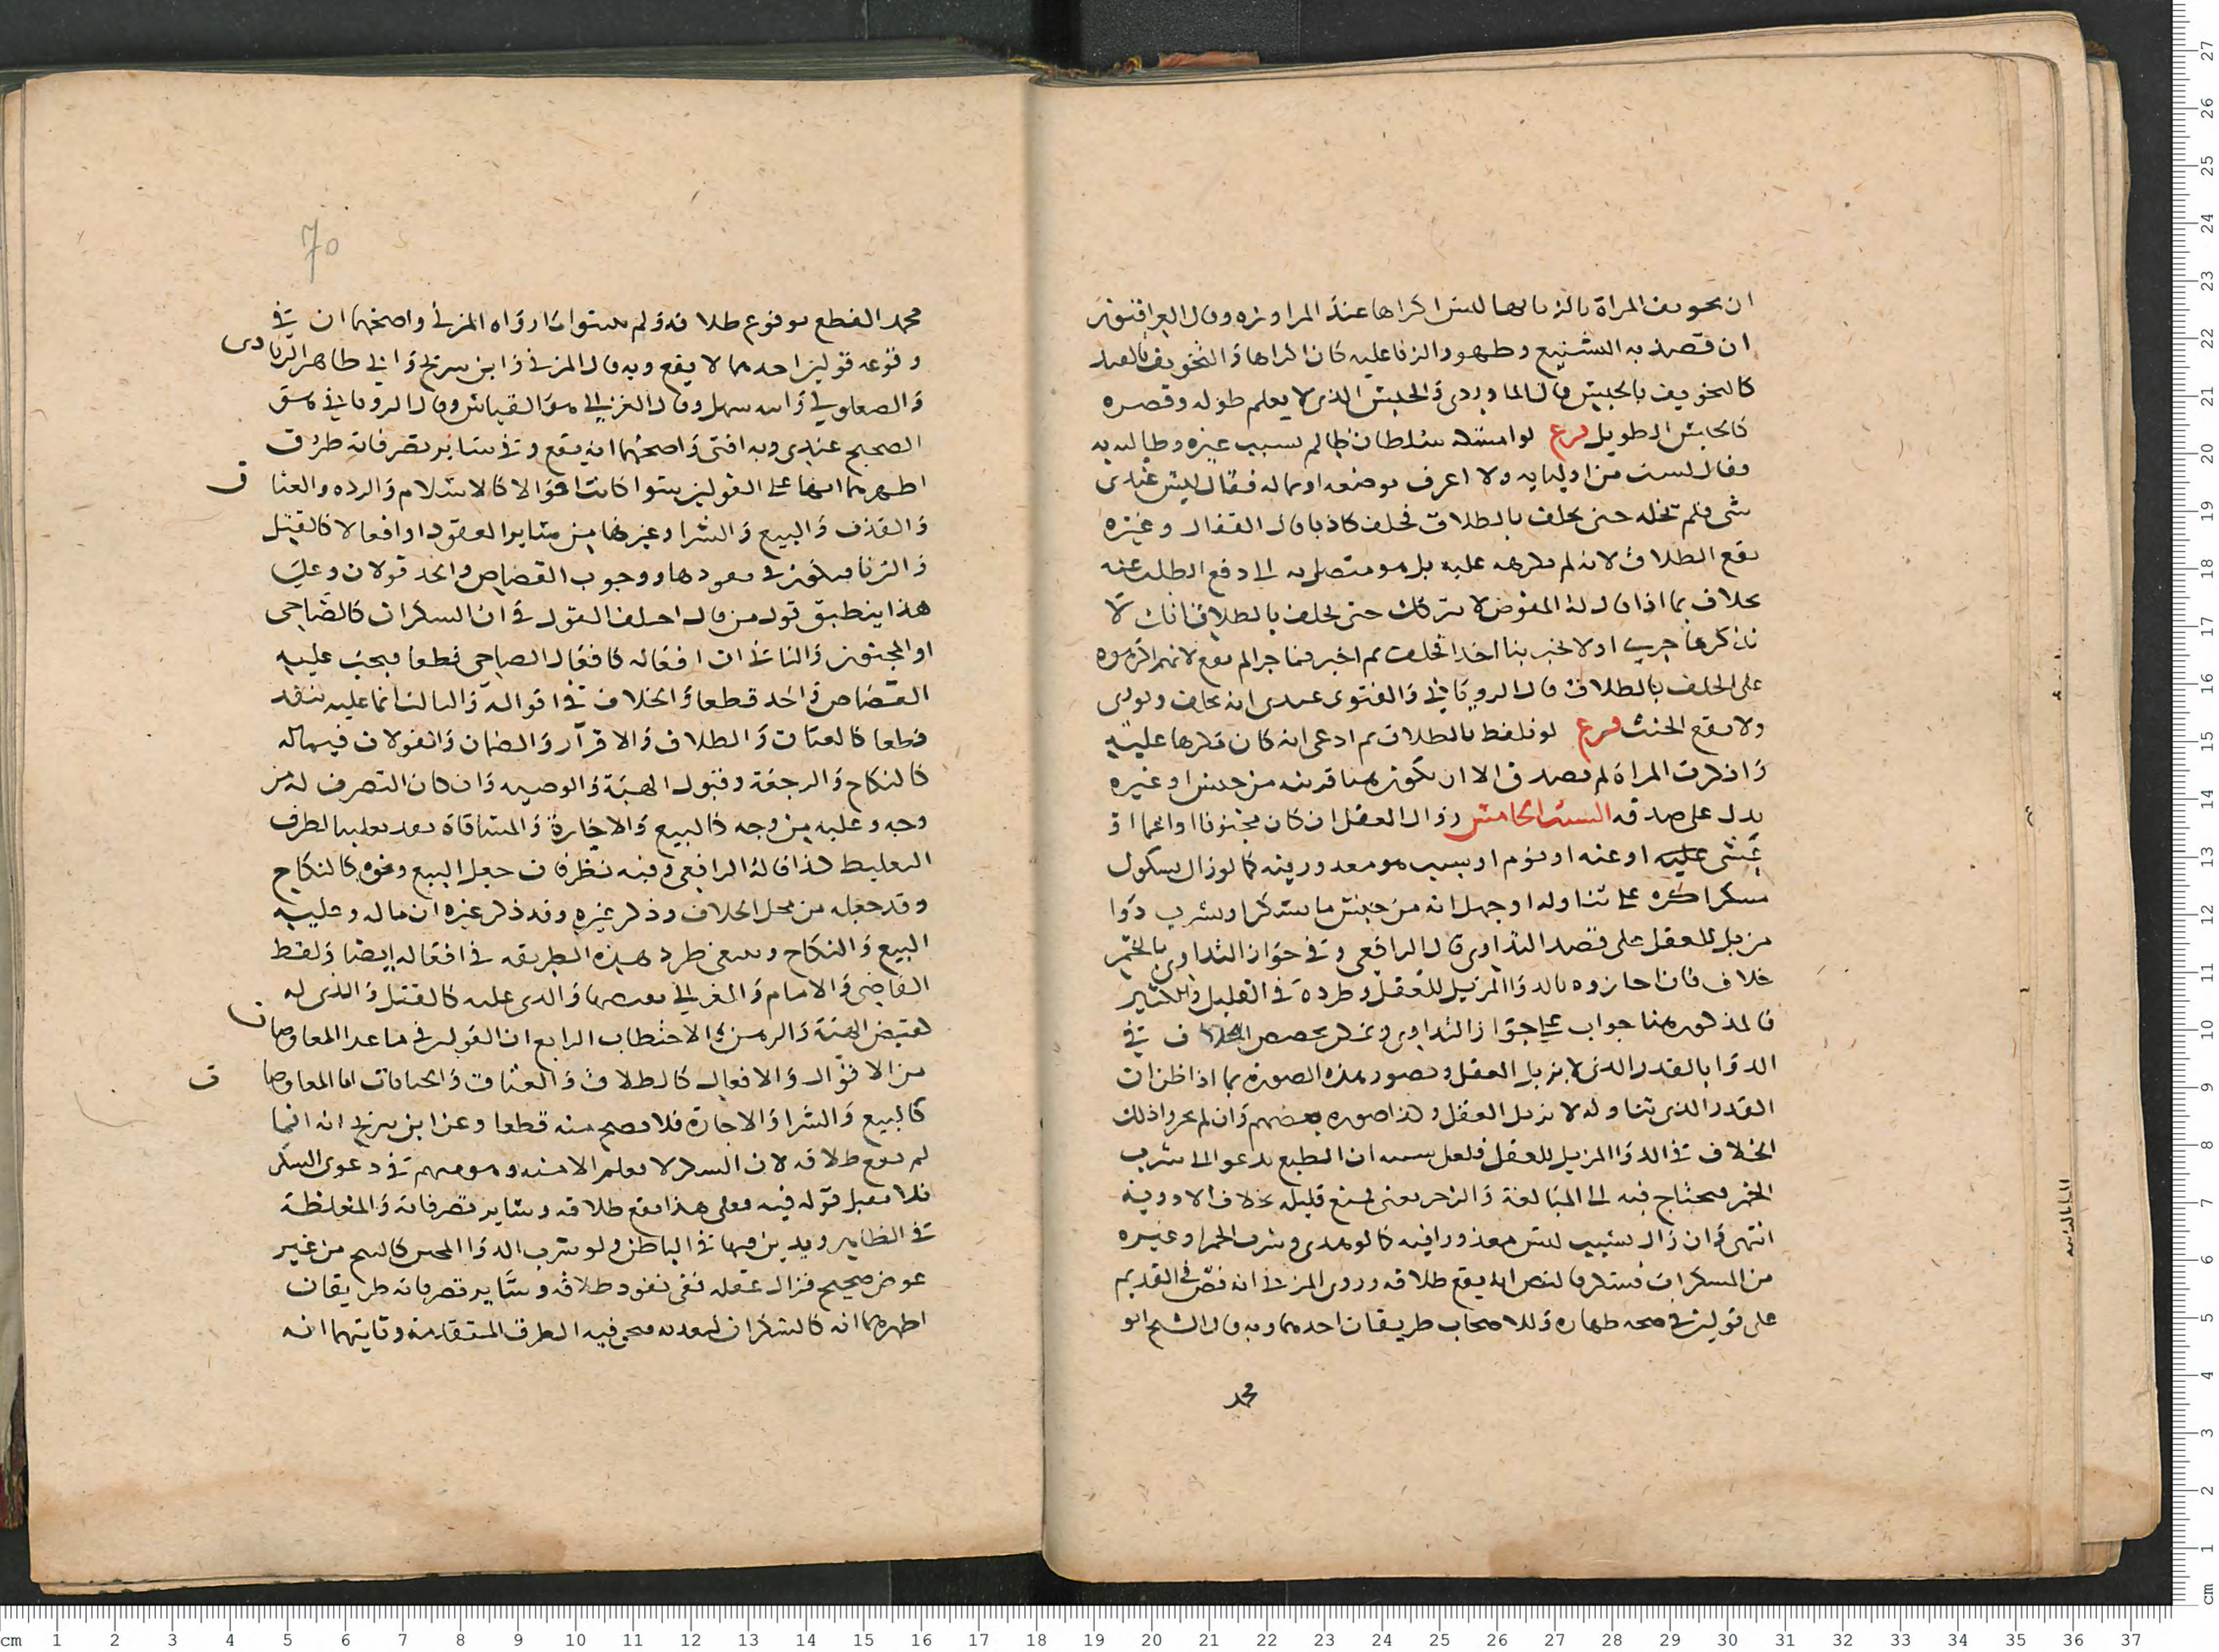 ان تخويف المراة بالزنا بها ليس اكراها عند المراوزه وقال العراقيون
ان قصد به التشنيع وظهور الزنا عليه كان اكراها والتخويف
كالتخويف بالحبس قال الماوردي والحبس الذي لا يعلم طوله وقصره
كالحبس الطويل فرع لو امسكه سلطان ظالم بسبب غيره وطالبه به
فقال لست من اوليايه ولا اعرف موضعه او ماله فقال ليس عندي
شي فلم تخله حتى يحلف بالطلاق فحلف كاذبا قال القفال وغيره
يقع الطلاق لانه لم يكرهه عليه بل هو متصل به الى دفع الطلب عنه
بخلاف ما اذا قال له اللصوص لا نتركك حتى تحلف بالطلاق انك لا
تذكر ما جرى او لا تخبر بنا احدا فحلف ثم اخبر بما جرى لم يقع لانهم اكرهوه
على الحلف بالطلاق قال الروياني والفتوى عندي انه يحلف ويوري
ولا يقع الحنث فرع لو تلفظ بالطلاق ثم ادعى انه كان مكرها عليه
وانكرت المراة لم يصدق الا ان تكون هنا قرينه من حبس او غيره
يدل على صدقه السبب الخامس زوال العقل ان كان مجنونا او اغما او
غشي عليه او عته او نوم او بسبب هو معذور فيه كما لو زال بسكول
مسكر اكره على تناوله او جهل انه من جنس ما يسكر او شرب دوا
مزيل للعقل على قصد التداوي قال الرافعي وفي جواز التداوي بالخمر
خلاف فان اجازوه بالدوا المزيل للعقل وطرده في القليل والكثير
فالمذكور هنا جواب على جواز التداوي ويمكن تخصيص الخلاف في
الدوا بالقدر الذي لا يزيل العقل وتصور هذه الصورة بما اذا ظن ان
القدر الذي تناوله لا يزيل العقل وكذا صوره بعضهم وان لم يجروا ذلك
الخلاف في الدوا المزيل للعقل فلعل سببه ان الطبع يدعو الى شرب
الخمر فيحتاج فيه الى المبالغة والزجر بمعنى يمنع قليله بخلاف الادوية
انتهى وان زال بسبب ليس معذورا فيه كما لو تعدى وشرب الخمر او غيره
من المسكرات فسكر فالنص انه يقع طلاقه وروى المزني انه نص في القديم
على قولين في صحه ظهاره وللاصحاب طريقان احدهما وبه قال الشيخ ابو
محمد
70
محمد القطع بوقوع طلاقه ولم يثبتوا ما رواه المزني واصحهما ان في
وقوعه قولين احدهما لا يقع وبه قال المزني وابن سريج وابي طاهر الزيادي
والصعلوكي وابنه سهل وقال الغزالي هو القياس وقال الروياني هو
الصحيح عندي وبه افتي واصحهما انه يقع وفي ساير تصرفاته طرق
اظهرهما انها على القولين سوا كانت اقوالا كالاسلام والرده والعتاق
والقذف والبيع والشرا وغيرها من ساير العقود او افعالا كالقتل
والزنا فيكون في نفودها ووجوب القصاص والحد قولان وعلى
هذا ينطبق قول من قال اختلف القول في ان السكران كالصاحي
او المجنون والثاني ان افعاله كافعال الصاحي قطعا فيجب عليه
القصاص والحد قطعا والخلاف في اقواله والثالث انما عليه ينفد
قطعا كالعتاق والطلاق والاقرار والضمان والقولان فيما له
كالنكاح والرجعة وقبول الهبة والوصيه وان كان التصرف له من
وجه وعليه من وجه كالبيع والاجارة والمساقاة نفد تغليبا لطرف
التغليظ كذا قاله الرافعي وفيه نظر فان جعل البيع ونحوه كالنكاح
وقد جعله من محل الخلاف وذكر غيره وقد ذكر غيره ان ما له وعليه
البيع والنكاح وينبغي طرد هذه الطريقه في افعاله ايضا ولفظ
القاضي والامام والغزالي يعضدها والذي عليه كالقتل والذي له
كقبض الهبة والرهن والاحتطاب الرابع ان القولين في ما عدا المعاوضات
من الاقوال والافعال كالطلاق والعتاق والجنايات اما المعاوضات
كالبيع والشرا والاجارة فلا يصح منه قطعا وعن ابن سريج انه انما
لم يقع طلاقه لان السكر لا يعلم الا منه وهو متهم في دعوى السكر
فلا يقبل قوله فيه فعلى هذا يقع طلاقه وساير تصرفاته والمغلظة
في الظاهر ويدين فيها في الباطن ولو شرب الدوا المجنن كالبنج من غير
عوض صحيح فزال عقله ففي نفود طلاقه وساير تصرفاته طريقان
اظهرهما انه كالسكران لتعديه فيجي فيه الطرق المتقدمة وثانيهما انه